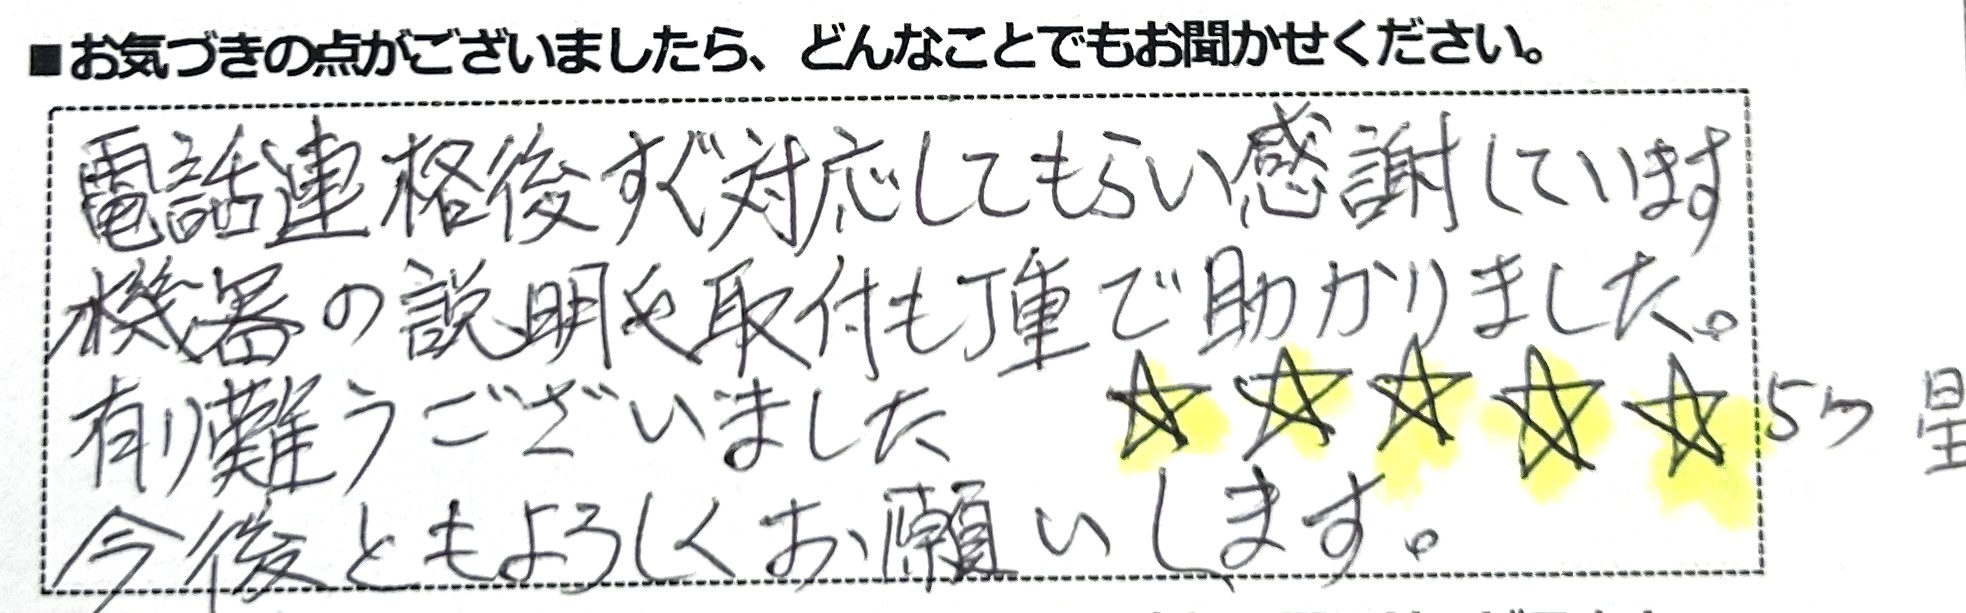 ■お気づきの点がございましたら、どんなことでもお聞かせください。
電話連格後すぐ対応してもらい感謝しています
機器の説明や取付も丁重で助かりました。
有り難うございました ☆☆☆☆☆ 5つ 星
今後ともよろしくお願いします。